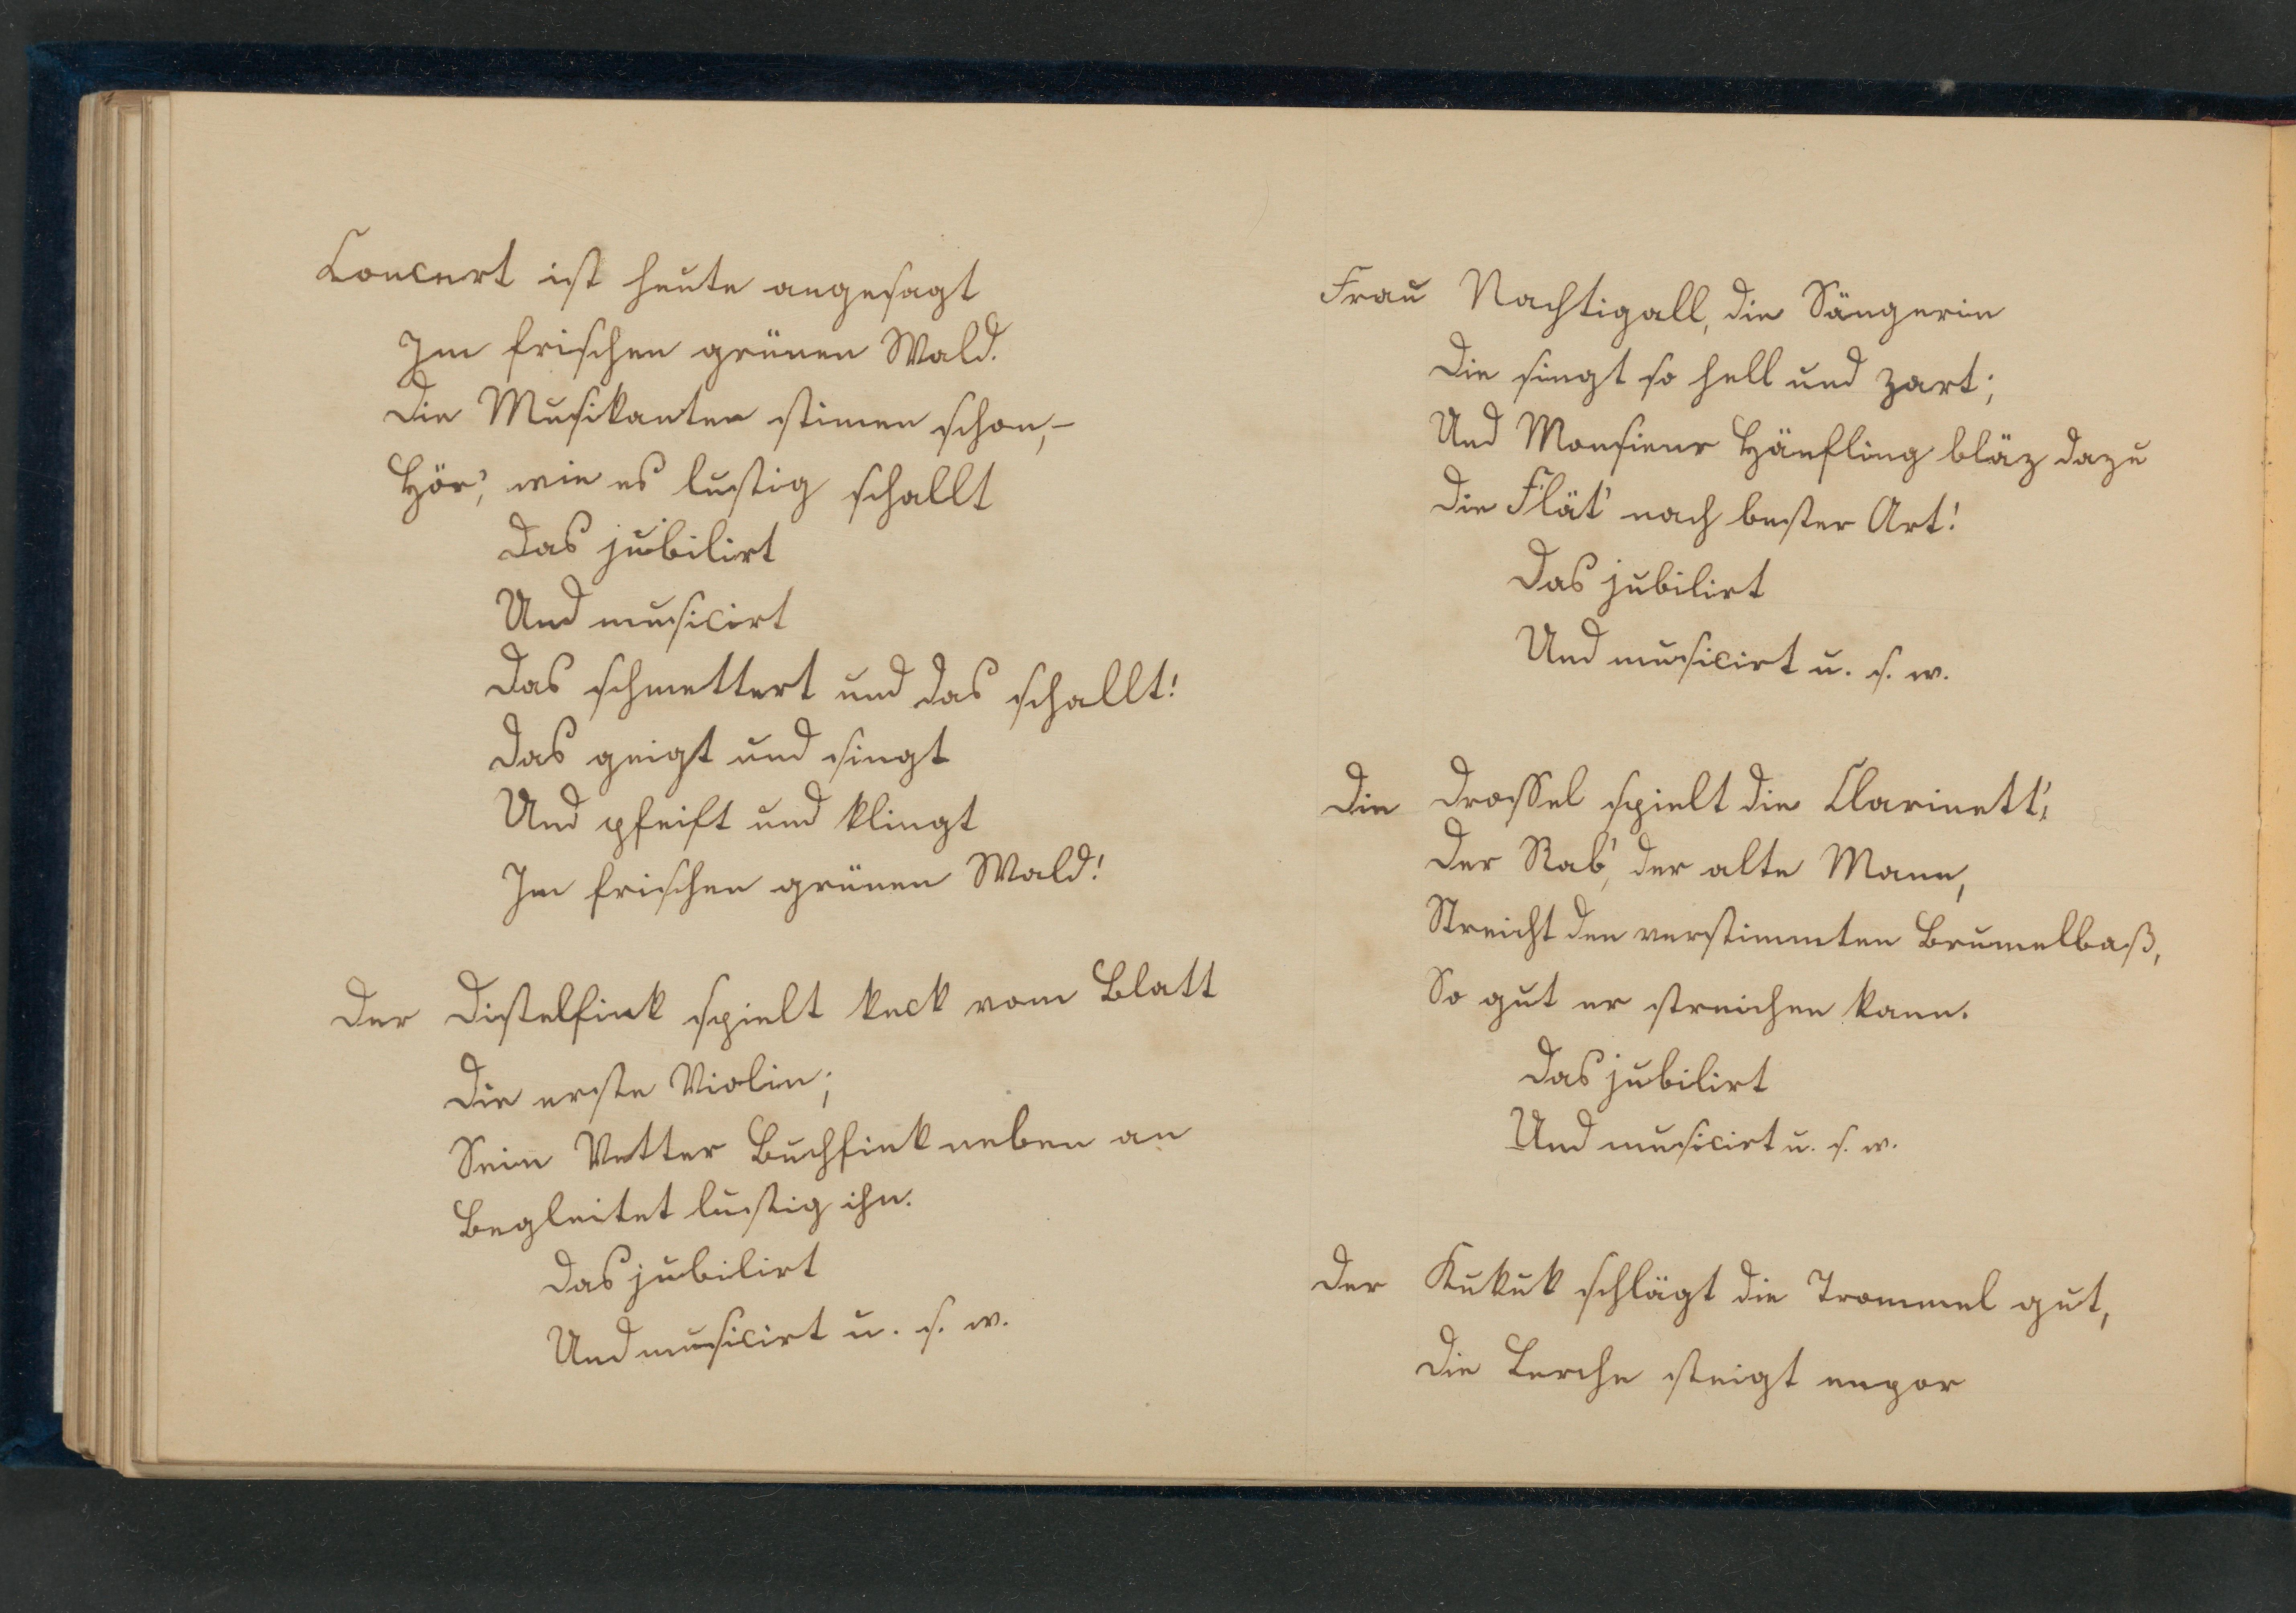 Concert ist heute angesagt
Im frischen grünen Wald.
Die Musikanten stimen schon,–
Hör', wie es lustig schallt
Das jubilirt
Und musicirt
Das schmettert und das schallt!
Das geigt und singt
Und pfeift und klingt
Im frischen grünen Wald!
Der Distelfink spielt keck vom Blatt
Die erste Violin;
Sein Vetter Buchfink neben an
Begleitet lustig ihn.
Das jubilirt
Und musicirt u. s. w.
Frau Nachtigall, die Sängerin
Die singt so hell und zart;
Und Monsieur Hänfling bläz dazu
Die Flät' nach bester Art!
Das jubilirt
Und musicirt u. s. w.
Die Drossel spielt die Clarinett',
Der Rab', der alte Mann,
Streicht den verstimmten Brumelbaß,
So gut er streichen kann.
Das jubilirt
Und musicirt u. s. w.
Der Kukuk schlägt die Trommel gut,
Die Lerche steigt empor